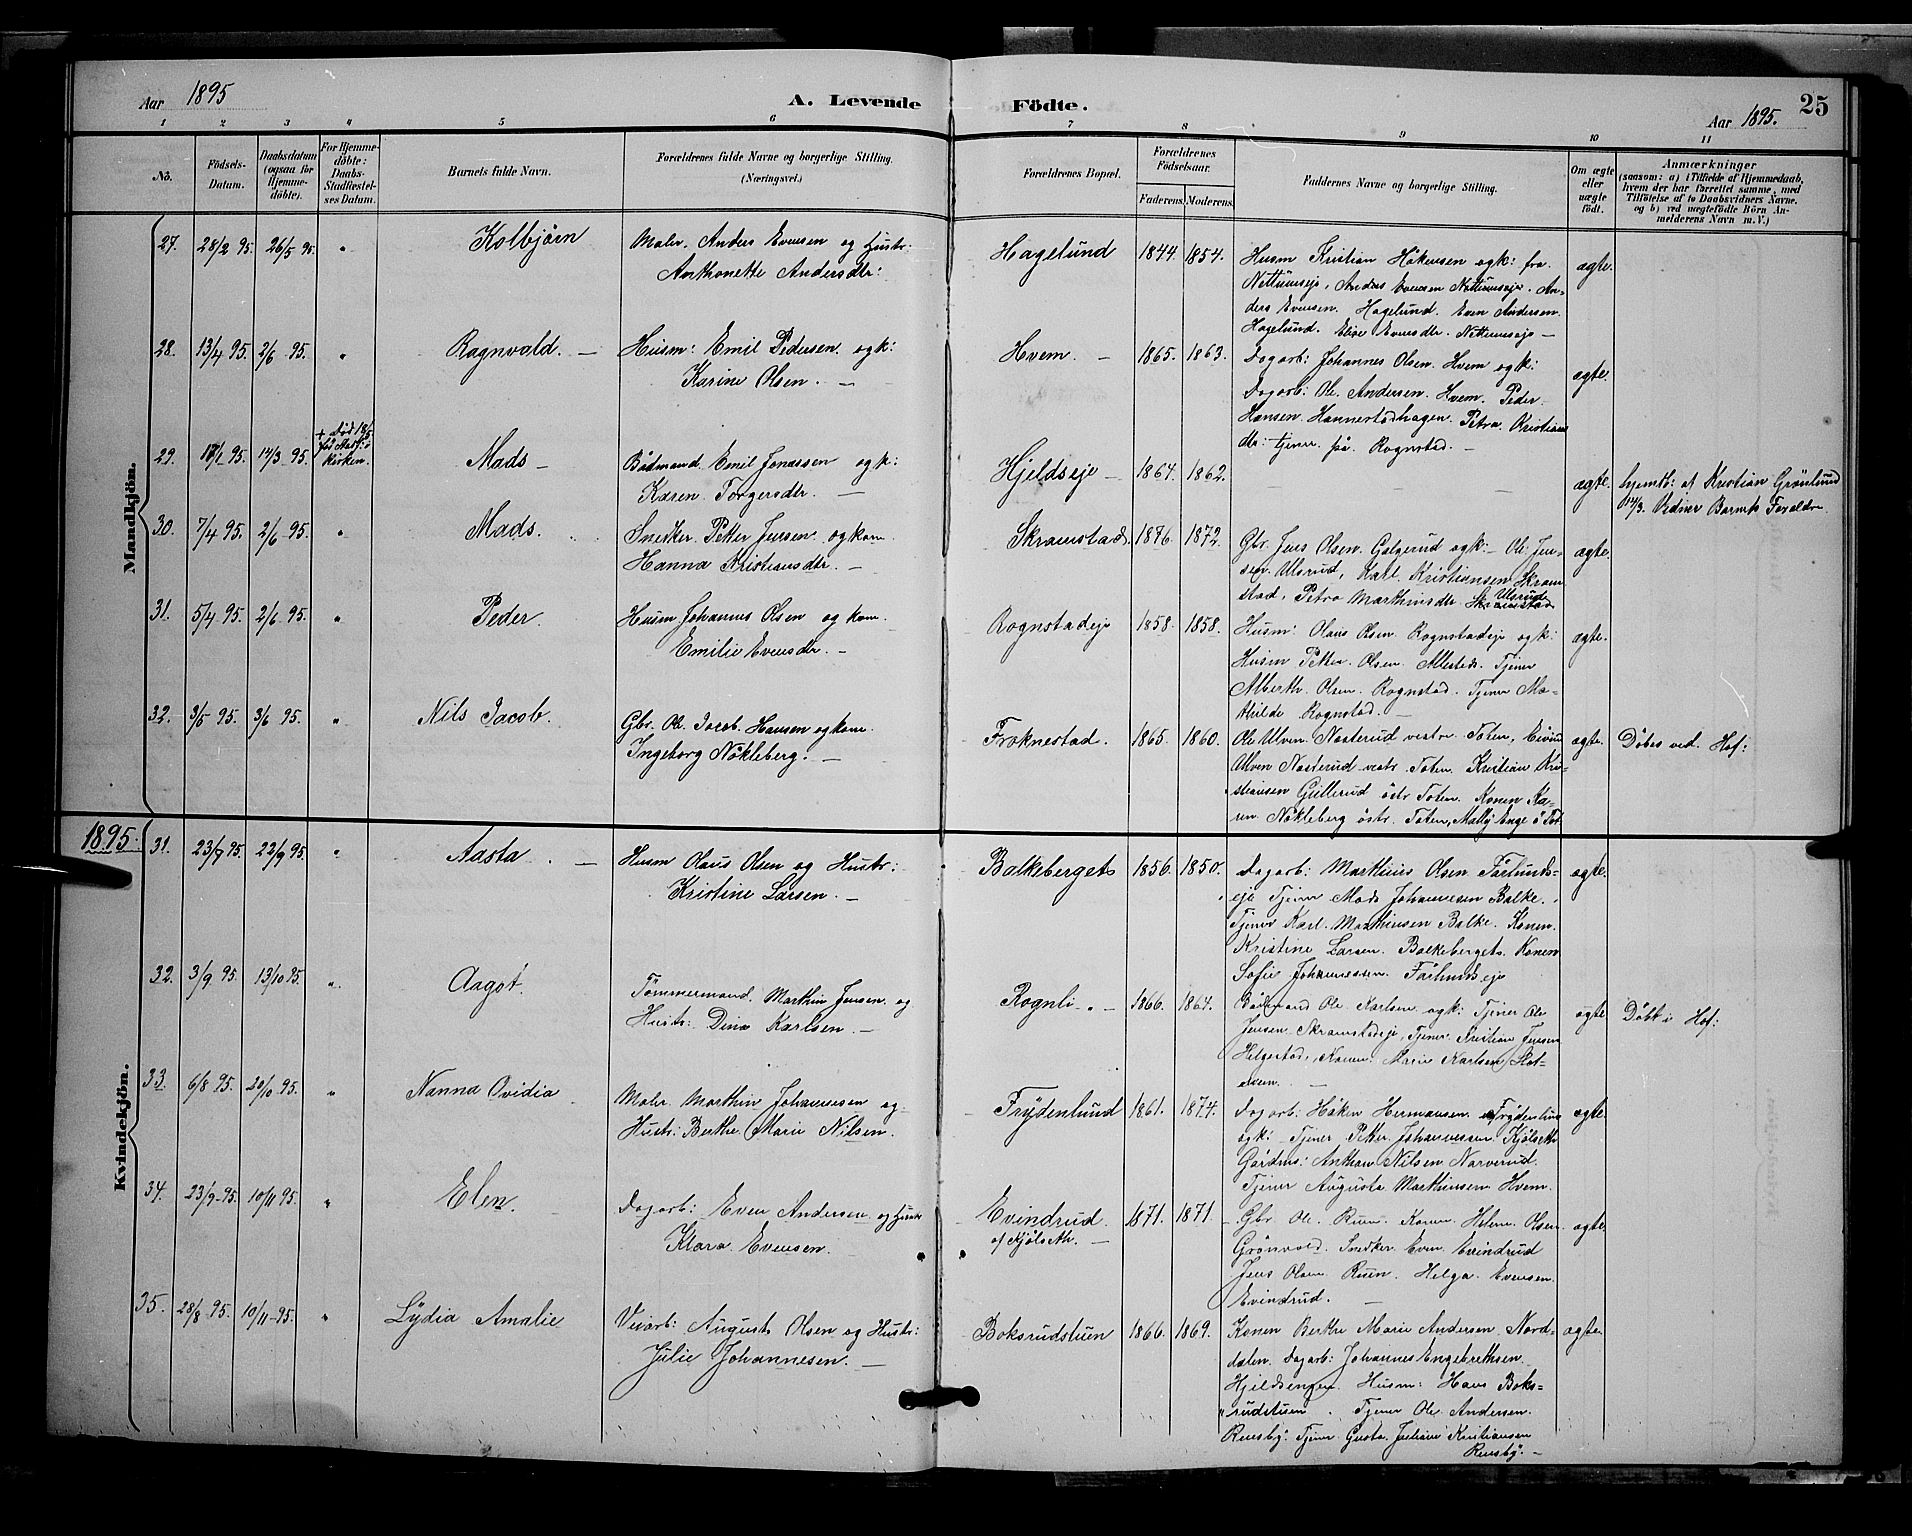 Aar 1895 A. Levende Födte. Aar 1895. 25
1 2 3 4 5 6 7 8 9 10 11
No.
Födsels-
Datum.
Daabsdatum
(ogsaa for
Hjemme-
döbte).
For Hjemme-
döbte:
Daabs-
Stadfæstel-
ses Datum.
Barnets fulde Navn.
Forældrenes fulde Navne og borgerlige Stilling.
(Næringsvei.)
Forældrenes Bopæl.
Forældrenes
Födselsaar.
Faderens. Moderens.
Faddernes Navne og borgerlige Stilling.
Om ægte
eller
uægte
født.
Anmærkninger
(saasom: a) i Tilfælde af Hjemmedaab,
hvem der har forrettet samme, med
Tilføielse af to Daabsvidners Navne,
og b) ved uægtefødte Börn An-
melderens Navn m. V.)
Mandkjön.
27. 28/2 95. 26/5 95. " Kolbjörn
Maler. Anders Evensen og Hustr:
Anthonette Andersdtr:
Hagelund 1844. 1854.
Husm Kristian Håkensen ogk: fra
Nettumseje, Anders Evensen Nettumseje. An-
ders Evensen. Hagelund. Even Andersen.
Hagelund. Evensdtr. Nettumseje —
ægte.
28. 13/4 95. 2/6 95. " Ragnvald. —
Husm: Emil Pedersen. ogk:
Karine Olsen. —
Hvem. — 1865. 1863.
Dagarb: Johannes Olsen. Hvem ogk:
Dagarb: Ole Andersen. Hvem. Peder
Hansen. Hannerstadhagen. Petra Kristians
dtr: tjener på Rognstad. —
ægte.
29. 17/1 95. 14/3 95. + død 18/5
før Stadf: i
Kirken. Mads —
Bådmand. Emil Jonassen ogk:
Karen Torgersdtr. —
Hjeldseje — 1864. 1862. — —
ægte.
hjemdb: af Kristian Grønlund
14/3. Vidner Barnets Forældre
30. 7/4 95. 2/6 95. " Mads.
Snedker Petter Jensen og kone
Hanna Kristiansdtr. —
Skramstad. 1876. 1872.
Gbr. Jens Olsen. Galgerud ogk: Ole Jen-
sen. Ulsrud, Karl Kristiansen Skram
stad, Petra Marthinsdtr Ulsrud
ægte.
31. 5/4 95. 2/6 95. " Peder.
Husm Johannes Olsen og kone
Emilie Evensdtr. —
Rognstadeje 1858. 1858.
Husm: Olaus Olsen Rognstadeje ogk:
Husm Petter Olsen. Tjener
Alberth Olsen. Rognstad. Tjener Ma-
thilde Rognstad. —
ægte.
32. 3/5 95. 3/6 95. " Nils Jacob.
Gbr. Ole Jacob Hansen og kone
Ingeborg Nökleberg. —
Froknestad. 1865. 1860.
Ole Ulven Nosterud vestre Toten, Eivind
Ulven Nosterud vestr Toten. Kristian Kri-
stiansen Gullerud östr Toten. Konen Ka-
ren Nökleberg östr. Toten, Mally Enge ö Tot
ægte. Döbes ved. Hof:
1895. Kvindekjön.
31. 23/7 95. 22/9 95. " Aasta. —
Husm Olaus Olsen og Hustr:
Kristine Larsen. —
Balkebergets 1856. 1850.
Dagarb: Marthius Olsen Fårlunds-
eje Tjener Mads Johannesen Balke.
Tjener Karl Marthinsen Balke. Konen
Kristine Larsen. Balkebergets. Konen
Sofie Johannessen. Fårlundseje
ægte.
32. 3/9 95. 13/10 95. " Aagot.
Tømmermand. Marthin Jensen og
Hustr: Dina Karlsen. —
Rognli. — 1866. 1864.
Bådmand Ole Karlsen ogk: Tjener Ole
Jensen. Skramstadeje, Tjener Kristian Jensen
Helgestad, Konen Marie Karlsen
ægte Döbt i Hof:
33. 6/8 95. 20/10 95. " Nanna Ovidia
Maler Marthin Johannesen og
Hustr: Berthe Marie Nilsen.
Frydenlund 1861. 1874.
Dagarb: Håken Hermansen Frydenlund
ogk: Tjener Petter Johannessen Kjölseth
Gårdms: Anthon Nilsen Narverud.
Tjener Augusta Marthinsen Hvem.
ægte
34. 23/9 95. 10/11 95. " Elen.
Dagarb: Even Andersen og Hustr
Klara Evensen.
Evindrud.
af Kjölseth. — 1871. 1871.
Gbr. Ole Ruen. Konen Helene Olsen
Grönvold. Snedker Even Evindrud
Jens Olsen Ruen. Helga Evensen
Evindrud. —
ægte.
35. 28/8 95. 10/11 95. " Lydia Amalie
Veiarb: August Olsen og Hustr:
Julie Johannesen. —
Boksrudstuen 1866. 1869.
Konen Berthe Marie Andersen Nord-
dalen. Dagarb: Johannes Engebrethsen
Hjeldsengen. Husm: Hans Boks-
rudstuen. Tjener Ole Andersen.
Reusby. Tjener Gusta Juliane Kristiansen
Reusby. —
ægte